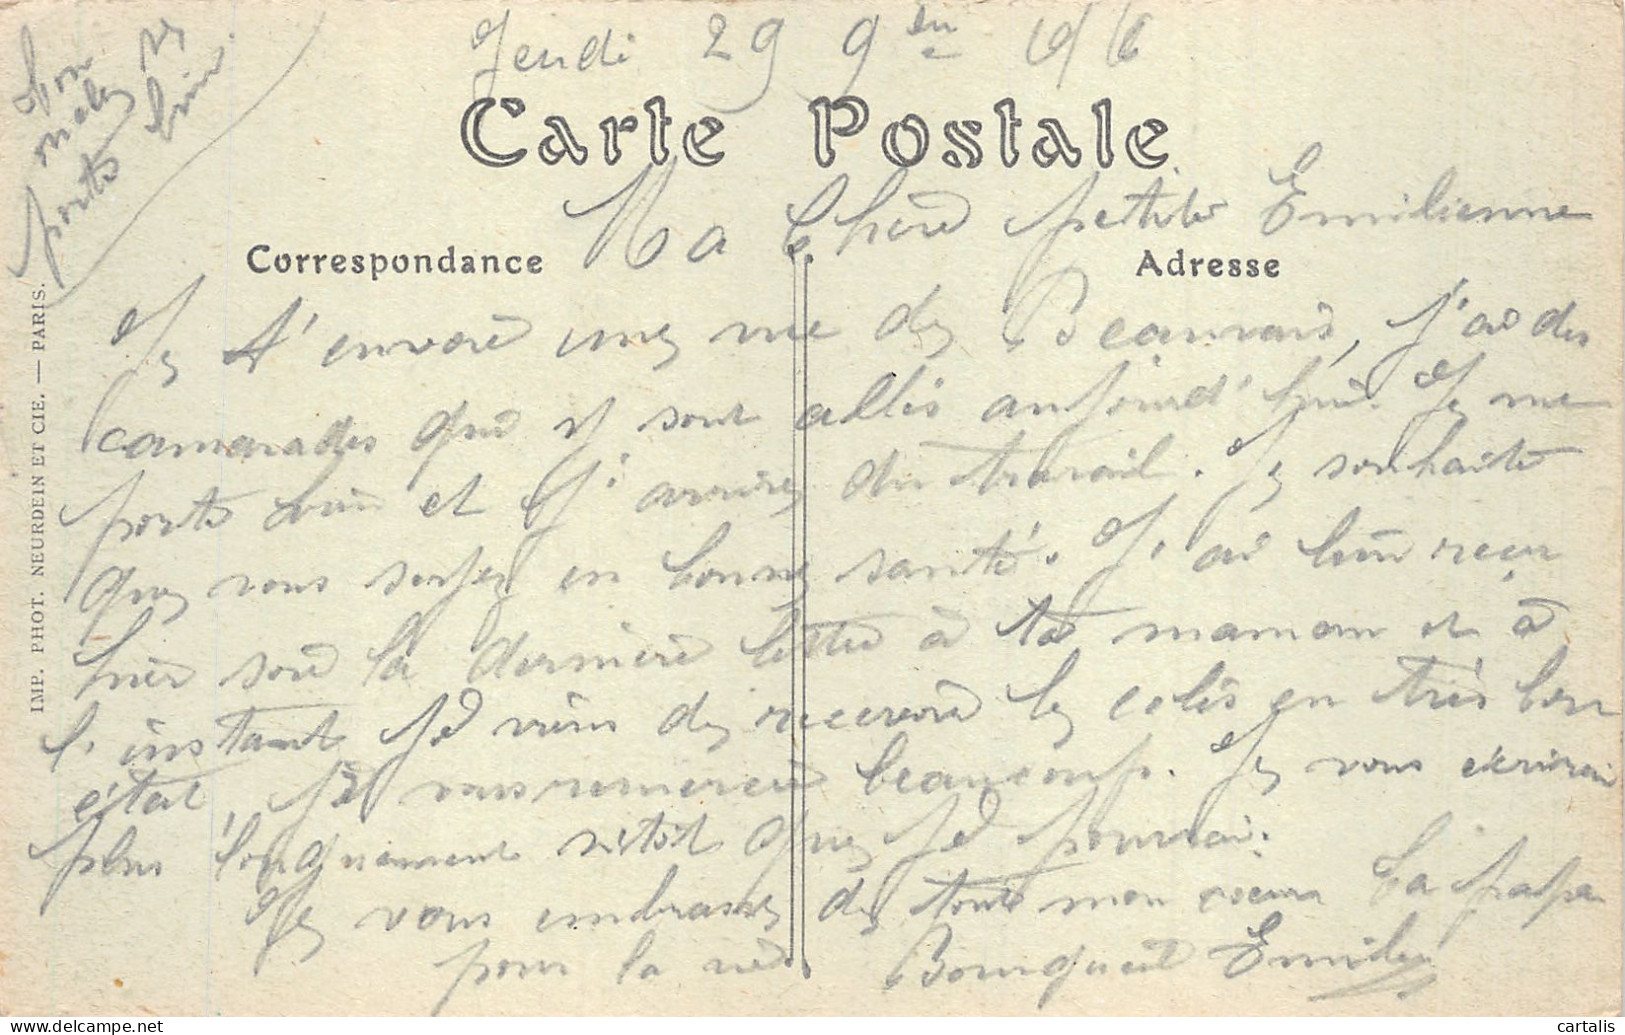 Jeudi 29 9bre 1916
Carte Postale
Ma Chère petite Emilienne
Correspondance
Adresse
Je t'envoie une vue de Beauvais, j'ai des
camarades qui y sont allés aujourd'hui. Je me
porte bien et j'arrive du travail. Je souhaite
que vous soyez en bonne santé. J'ai bien reçu
hier soir la dernière lettre à ta maman et à
l'instant je viens de recevoir le colis en très bon
état, je vous remercie beaucoup. Je vous écrirai
plus longuement sitôt que je pourrai.
Je vous embrasse de tout mon coeur Ta papa
pour la vie. Bourgueil Emilien
Bon
porte
bien.
IMP. PHOT. NEURDEIN ET CIE. — PARIS.
delcampe.net
cartalis